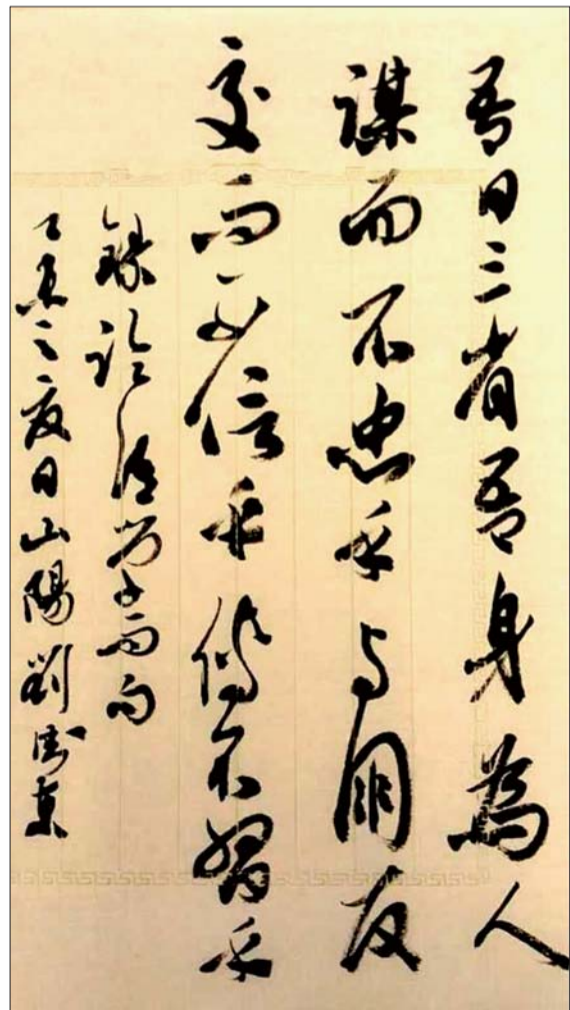 吾日三省吾身為人
謀而不忠乎与朋友
交而不信乎傳不習乎
錄論語曾子當句
之夏日山陽劉